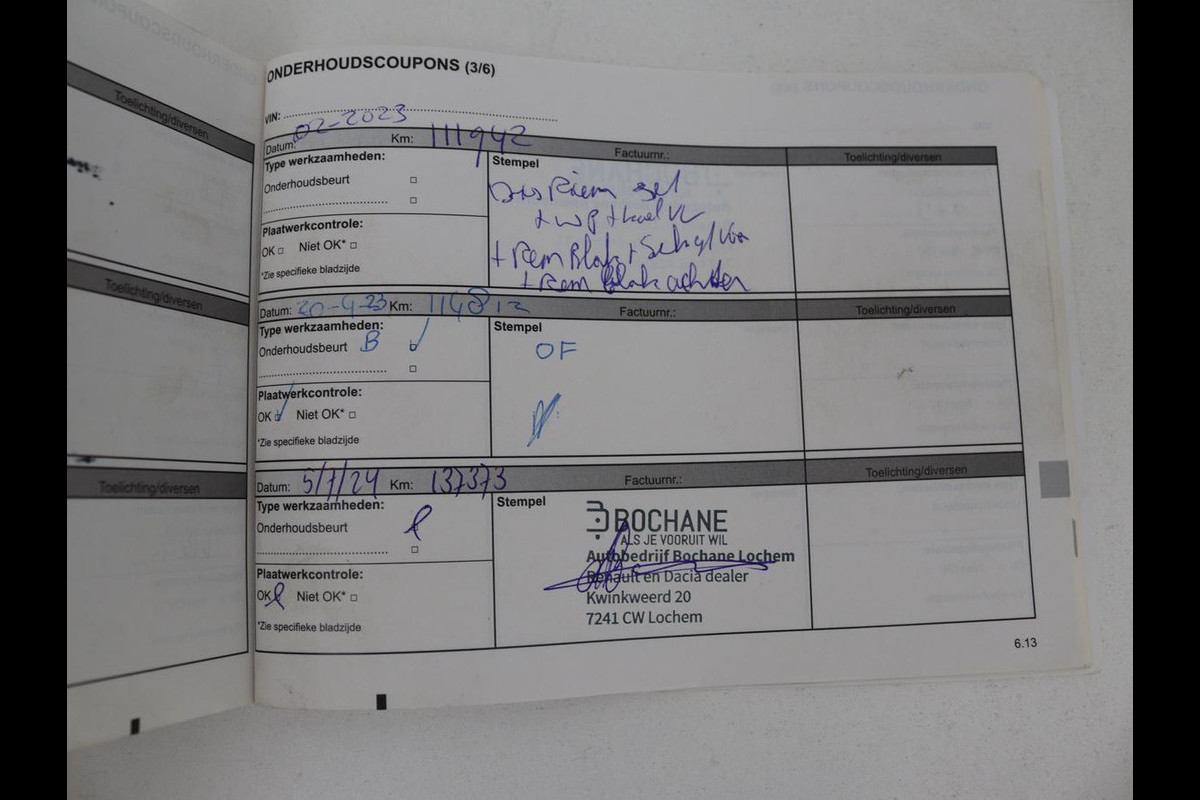 Toelichting/diversen
Toelichting/diversen
Toelichting/diversen
ONDERHOUDSCOUPONS (3/6)
VIN:
Datum: 02-2023 Km: 111942 Factuurnr.: Toelichting/diversen
Type werkzaamheden: Stempel
Onderhoudsbeurt □
□
Plaatwerkcontrole:
OK □ Niet OK* □
*Zie specifieke bladzijde
Riem set
+ wp +
+ Rem Blok +
+ Rem Blok achter
Datum: 20-4-23 Km: 114812 Factuurnr.: Toelichting/diversen
Type werkzaamheden: Stempel
Onderhoudsbeurt B □
□
OF
Plaatwerkcontrole:
OK □ Niet OK* □
*Zie specifieke bladzijde
Datum: 5/7/24 Km: 137373 Factuurnr.: Toelichting/diversen
Type werkzaamheden: Stempel
Onderhoudsbeurt
□
Plaatwerkcontrole:
OK Niet OK* □
*Zie specifieke bladzijde
BOCHANE
ALS JE VOORUIT WIL
Autobedrijf Bochane Lochem
Renault en Dacia dealer
Kwinkweerd 20
7241 CW Lochem
6.13